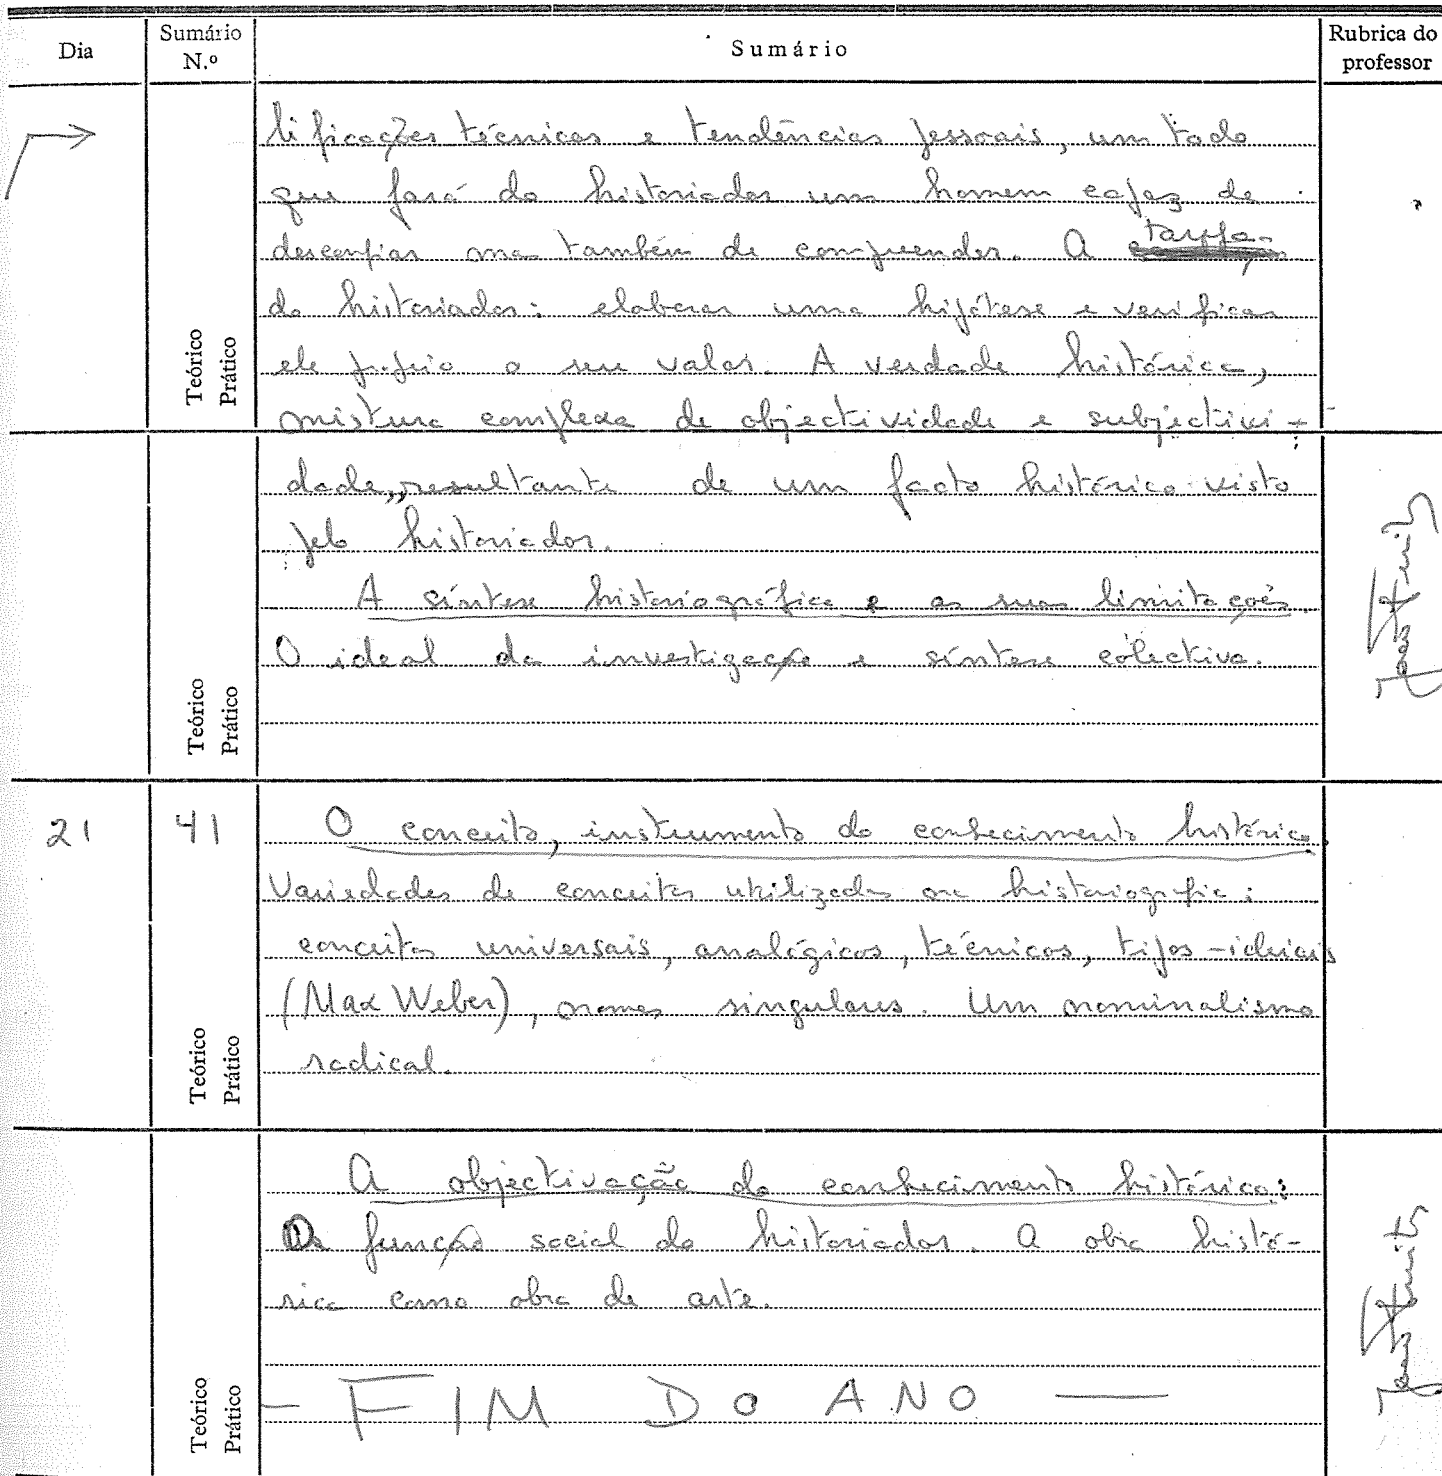 Dia
Sumário N.º
Sumário
Rubrica do professor
lificações técnicas e tendências pessoais, um todo
que fará do historiador um homem capaz de
desconfiar mas também de compreender. A tarefa
do historiador: elaborar uma hipótese e verificar
ele próprio o seu valor. A verdade histórica,
mistura complexa de objectividade e subjectivi-
Teórico
Prático
dade, resultante de um facto histórico visto
pelo historiador.
A síntese historiográfica e as suas limitações.
O ideal da investigação e síntese colectiva.
Teórico
Prático
21
41
O conceito, instrumento do conhecimento histórico.
Variedades de conceitos utilizados na historiografia:
conceitos universais, analógicos, técnicos, tipos-ideais
(Max Weber), nomes singulares. Um nominalismo
radical.
Teórico
Prático
A objectivação do conhecimento histórico:
A função social do historiador. A obra histó-
rica como obra de arte.
- FIM DO ANO -
Teórico
Prático